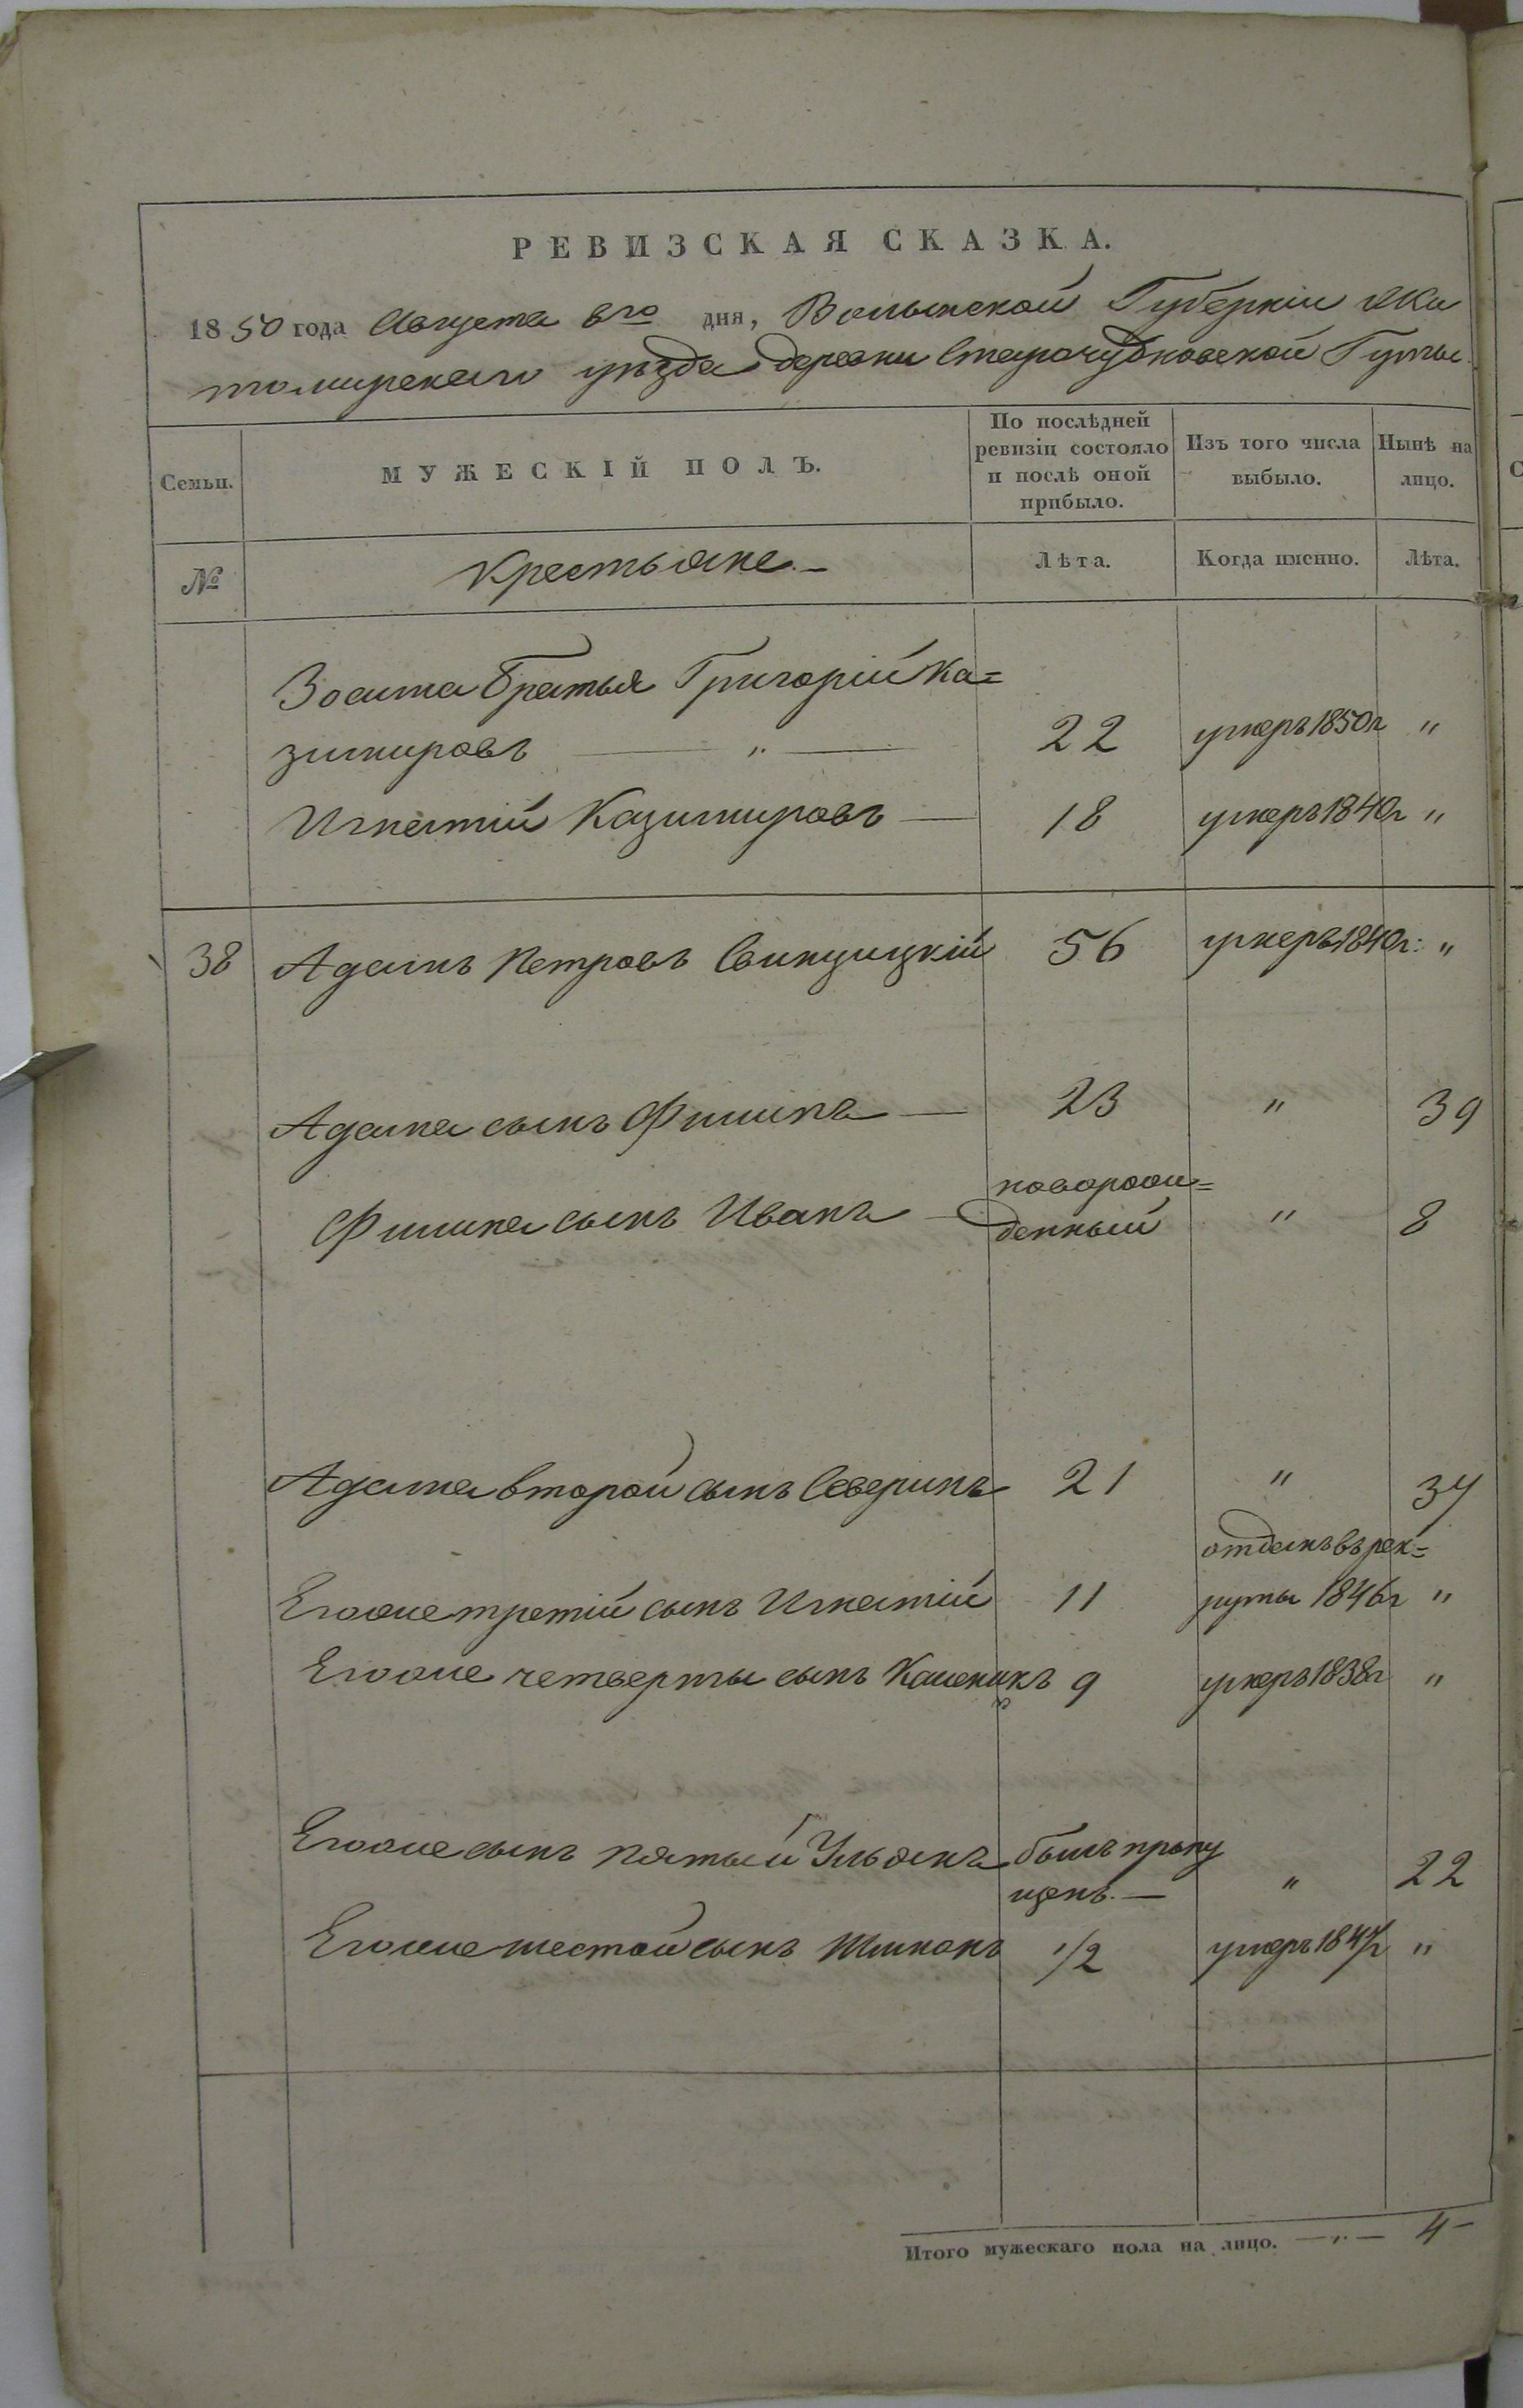 РЕВИЗСКАЯ СКАЗКА.
1850 года Августа 6го дня, Волынской Губерніи Жи
томирскаго уѣзда деревни Старочудновской Гуты
Семьи. МУЖЕСКІЙ ПОЛЪ. По послѣдней ревизіи состояло и послѣ оной прибыло. Изъ того числа выбыло. Нынѣ на лицо.
№ Крестьяне. Лѣта. Когда именно. Лѣта.
братья Григорій Ка=
зимировъ — " — 22 умеръ 1850г "
Игнатій Казимировъ — 18 умеръ 1840г "
38 Адамъ Петровъ 56 умеръ 1840г: "
Адама сынъ Филипъ — 23 " 39
новорож=
Филипа сынъ Иванъ — денный " 8
Адама второй сынъ Северинъ 21 " 37
отданъ въ рек=
Егоже третій сынъ Игнатій 11 руты 1846г "
Егоже четверты сынъ 9 умеръ 1838г "
Егоже сынъ пятый Ульянъ былъ пропу
щенъ. — " 22
Егоже шестой сынъ 1/2 умеръ "
Итого мужескаго пола на лицо. — " — 4 –